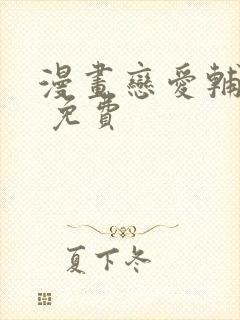 漫畫戀愛輔
免費
夏下冬